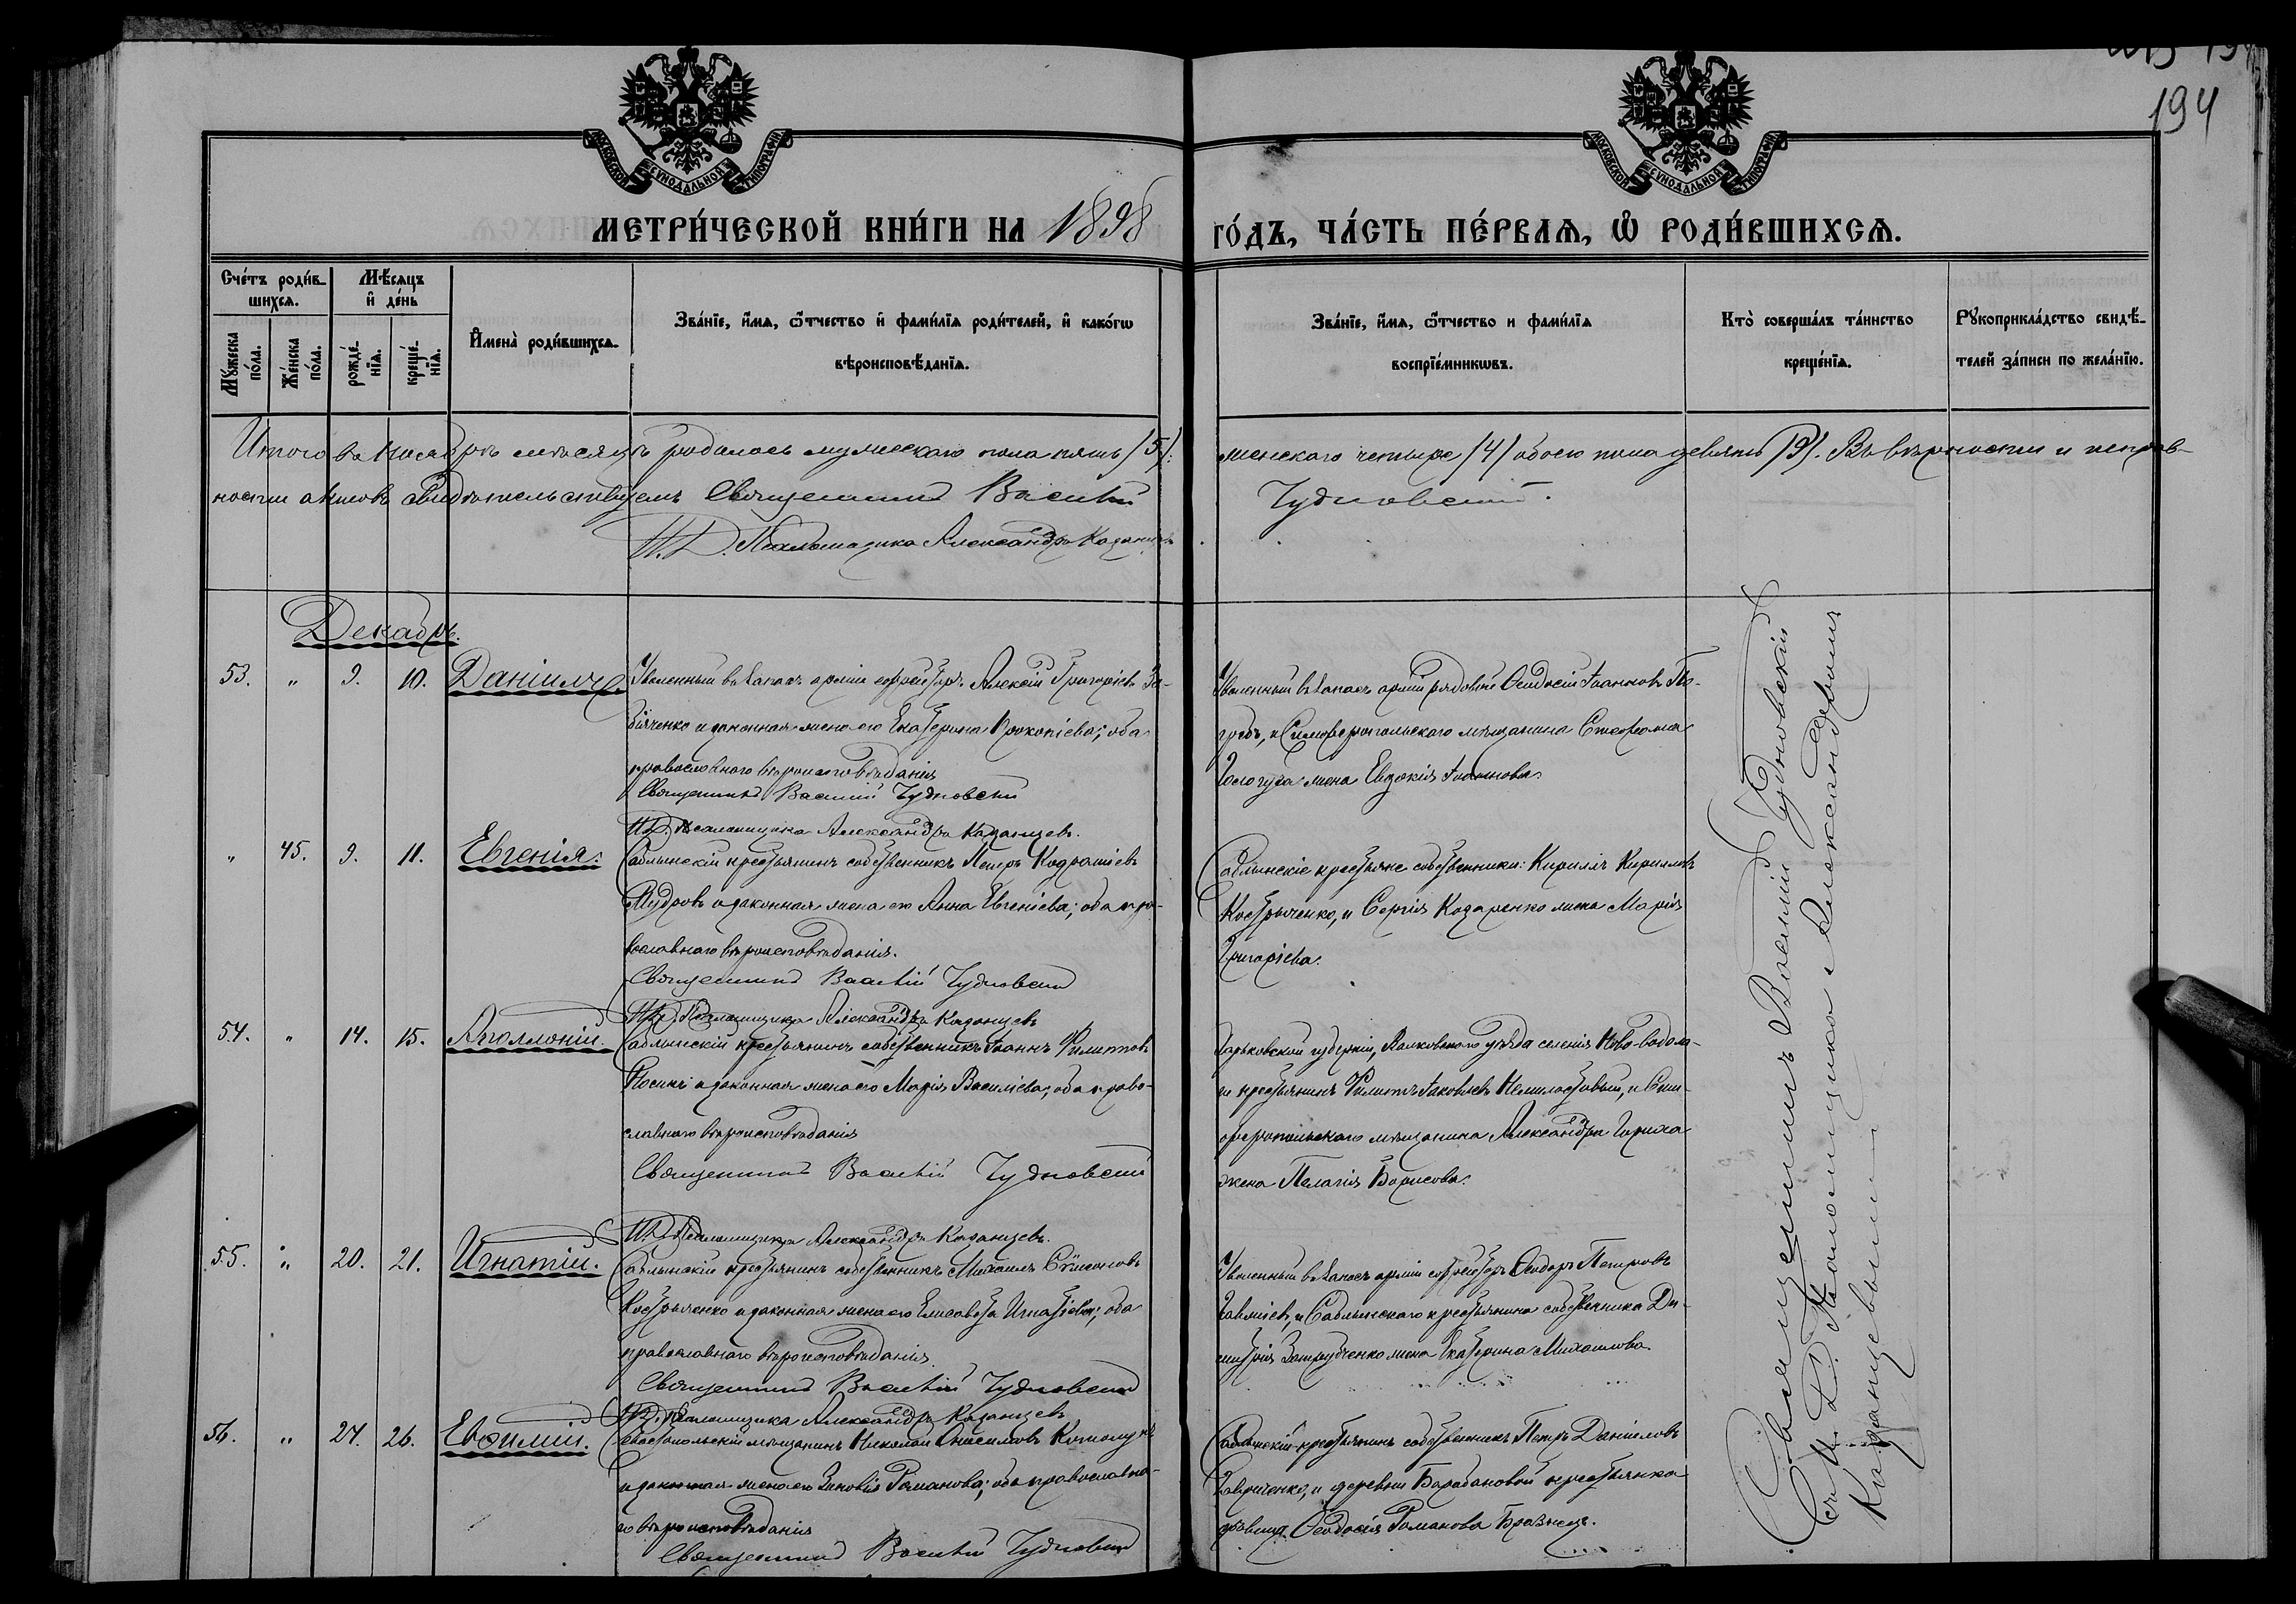 194
МОСКОВСКОЙ СУНОДАЛЬНОЙ ТИПОГРАФІИ
МОСКОВСКОЙ СУНОДАЛЬНОЙ ТИПОГРАФІИ
МЕТРИ́ЧЕСКОЙ КНИ́ГИ НА 1898 ГО́ДЪ, ЧА́СТЬ ПЕ́РВАѦ, Ѡ РОДИ́ВШИХСѦ.
Сче́тъ роди́в-
шихсѧ.
Мꙋ́жеска по́ла.
Же́нска по́ла.
Мѣ́сѧцъ
и҆ де́нь
рожде́-
нїѧ.
креще́-
нїѧ.
И҆мена̀ роди́вшихсѧ.
Зва́нїе, и҆́мѧ, ѻ҆́тчество и҆ фами́лїѧ роди́телей, и҆ како́гѡ
вѣроисповѣ́данїѧ.
Зва́нїе, и҆́мѧ, ѻ҆́тчество и фами́лїѧ
воспрїе́мникѡвъ.
Кто̀ соверша́лъ та́инство
креще́нїѧ.
Рꙋкоприкла́дство свидѣ́-
телей за́писи по жела́нїю.
Итого въ Ноябрѣ мѣсяцѣ родилось мужескаго пола пять (5):
женскаго четыре (4) обоего пола девять (9). Въ вѣрности и исправ-
ности актовъ свидѣтельствуемъ Священникъ Василій
Чудновскій.
И.Д. Псаломщика Александръ Казанцевъ
Декабрь.
53. " 9. 10. Даніилъ.
Уволенный въ запасъ арміи ефрейторъ Алексій Григорьевъ За-
біяченко и законная жена его Екатерина Прокопіева; оба
православнаго вѣроисповѣданія
Священникъ Василій Чудновскій
И.Д. Псаломщика Александръ Казанцевъ.
Уволенный въ запасъ арміи рядовой Ѳеодосій Іоанновъ По-
гребъ, и Симферопольскаго мѣщанина Стефана
жена Евдокія
" 45. 9. 11. Евгенія.
Саблынскій крестьянинъ собственникъ Петръ Кодратіевъ
Мудровъ и законная жена его Анна Евгеніева; оба пра-
вославнаго вѣроисповѣданія.
Священникъ Василій Чудновскій
И.Д. Псаломщика Александръ Казанцевъ
Саблынскіе крестьяне собственники: Кириллъ Кирилловъ
Костыченко, и Сергія Козаренко жена Марія
Григоріева.
54. " 14. 15. Аполлоній.
Саблынскій крестьянинъ собственникъ Іоаннъ Филиповъ
Носикъ и законная жена его Марія Василіева; оба право-
славнаго вѣроисповѣданія
Священникъ Василій Чудновскій
И.Д. Псаломщика Александръ Казанцевъ.
Харьковской губерніи, Валковскаго уѣзда селенія Ново-водола-
ги крестьянинъ Филипъ Іаковлевъ Немилостивый, и Сим-
феропольскаго мѣщанина Александра
жена Пелагія Борисова.
55. " 20. 21. Игнатій.
Саблынскій крестьянинъ собственникъ Михаилъ Симеоновъ
Костыченко и законная жена его Елисавета Игнатіева; оба
православнаго вѣроисповѣданія.
Священникъ Василій Чудновскій
И.Д. Псаломщика Александръ Казанцевъ
Уволенный въ запасъ арміи ефрейторъ Ѳеодоръ Петровъ
и Саблынскаго крестьянина собственника Ди-
митрія жена Екатерина Михаилова.
56. " 24. 26. Евѳимій.
Севастопольскій мѣщанинъ Николай Онисимовъ
и законная жена его Зиновія Романова; оба православна-
го вѣроисповѣданія
Священникъ Василій Чудновскій
Саблынскій крестьянинъ собственникъ Петръ Даніиловъ
Гавриченко, и деревни Барабановой крестьянка
дѣвица Ѳеодосія Романова
Священникъ Василій Чудновскій
съ И.Д. Псаломщика Александромъ
Казанцевымъ